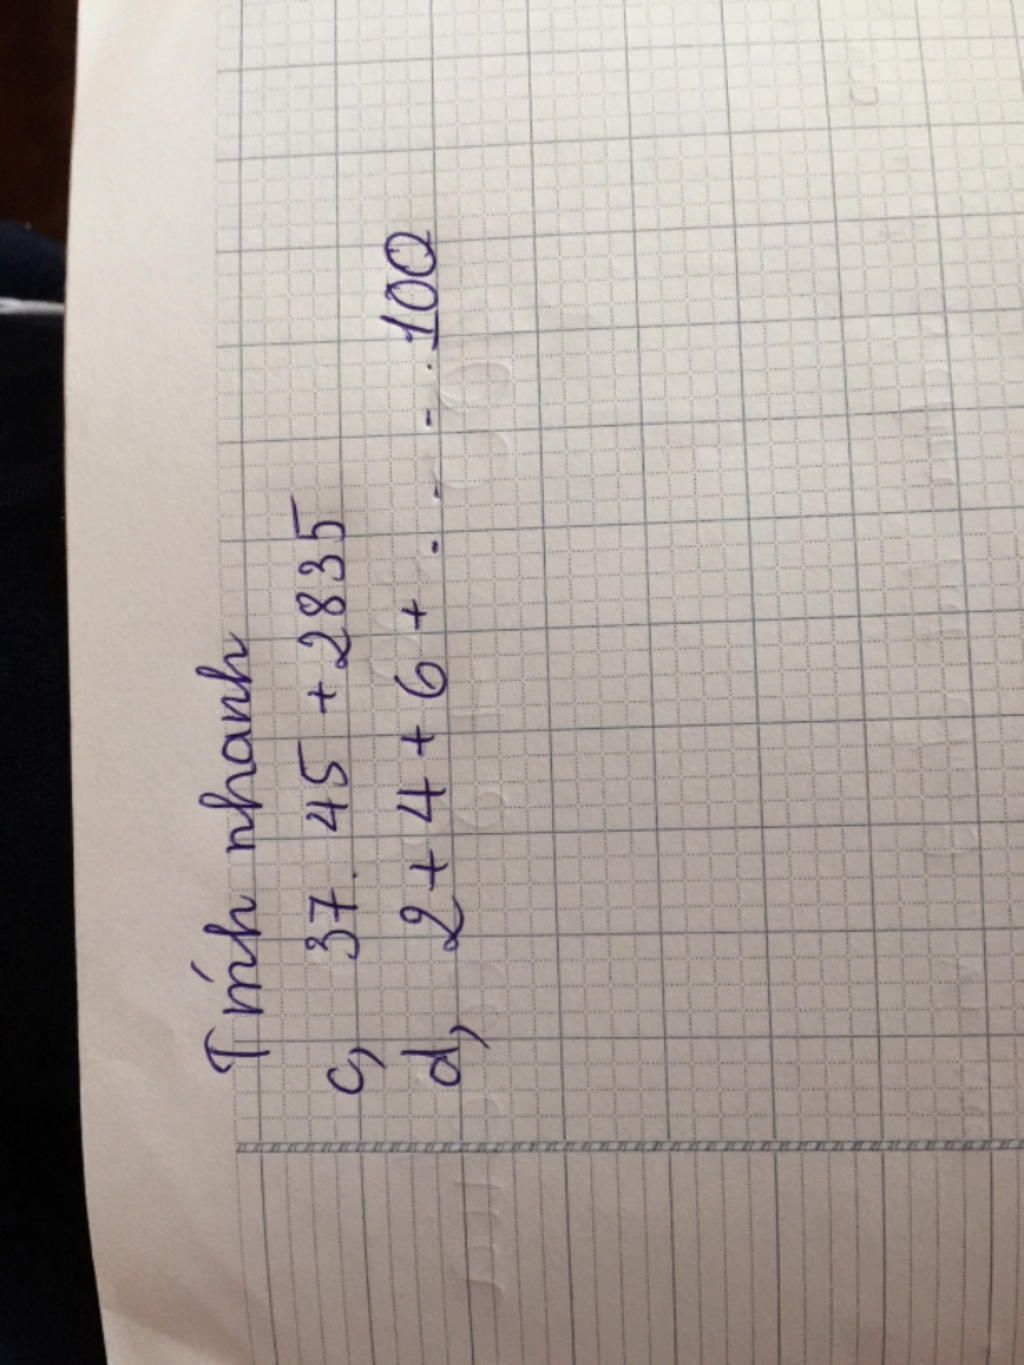 Tính nhanh
c, 37. 45 + 2835
d, 2 + 4 + 6 + . . - . 100